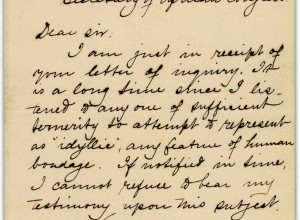 Secretary of
Dear sir:
I am just in receipt
of your letter of inquiry. It
is a long time since I lis-
tened to any one of sufficient
temerity to attempt to represent
as "idyllic", any feature of human
bondage. If notified in time,
I cannot refuse to bear my
testimony upon this subject.